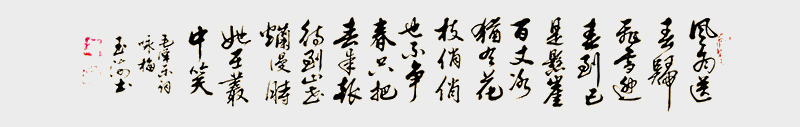 風雨送
春歸
飛雪迎
春到已
是懸崖
百丈冰
猶有花
枝俏俏
也不争
春只把
春来報
待到山花
爛漫時
她在叢
中笑
毛澤东词
咏梅